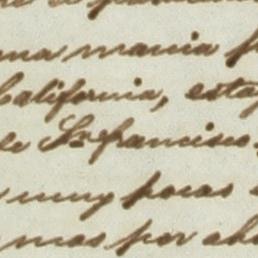 una mania p
California, esta
de Sn francisco.
muy pocas
mas por aho